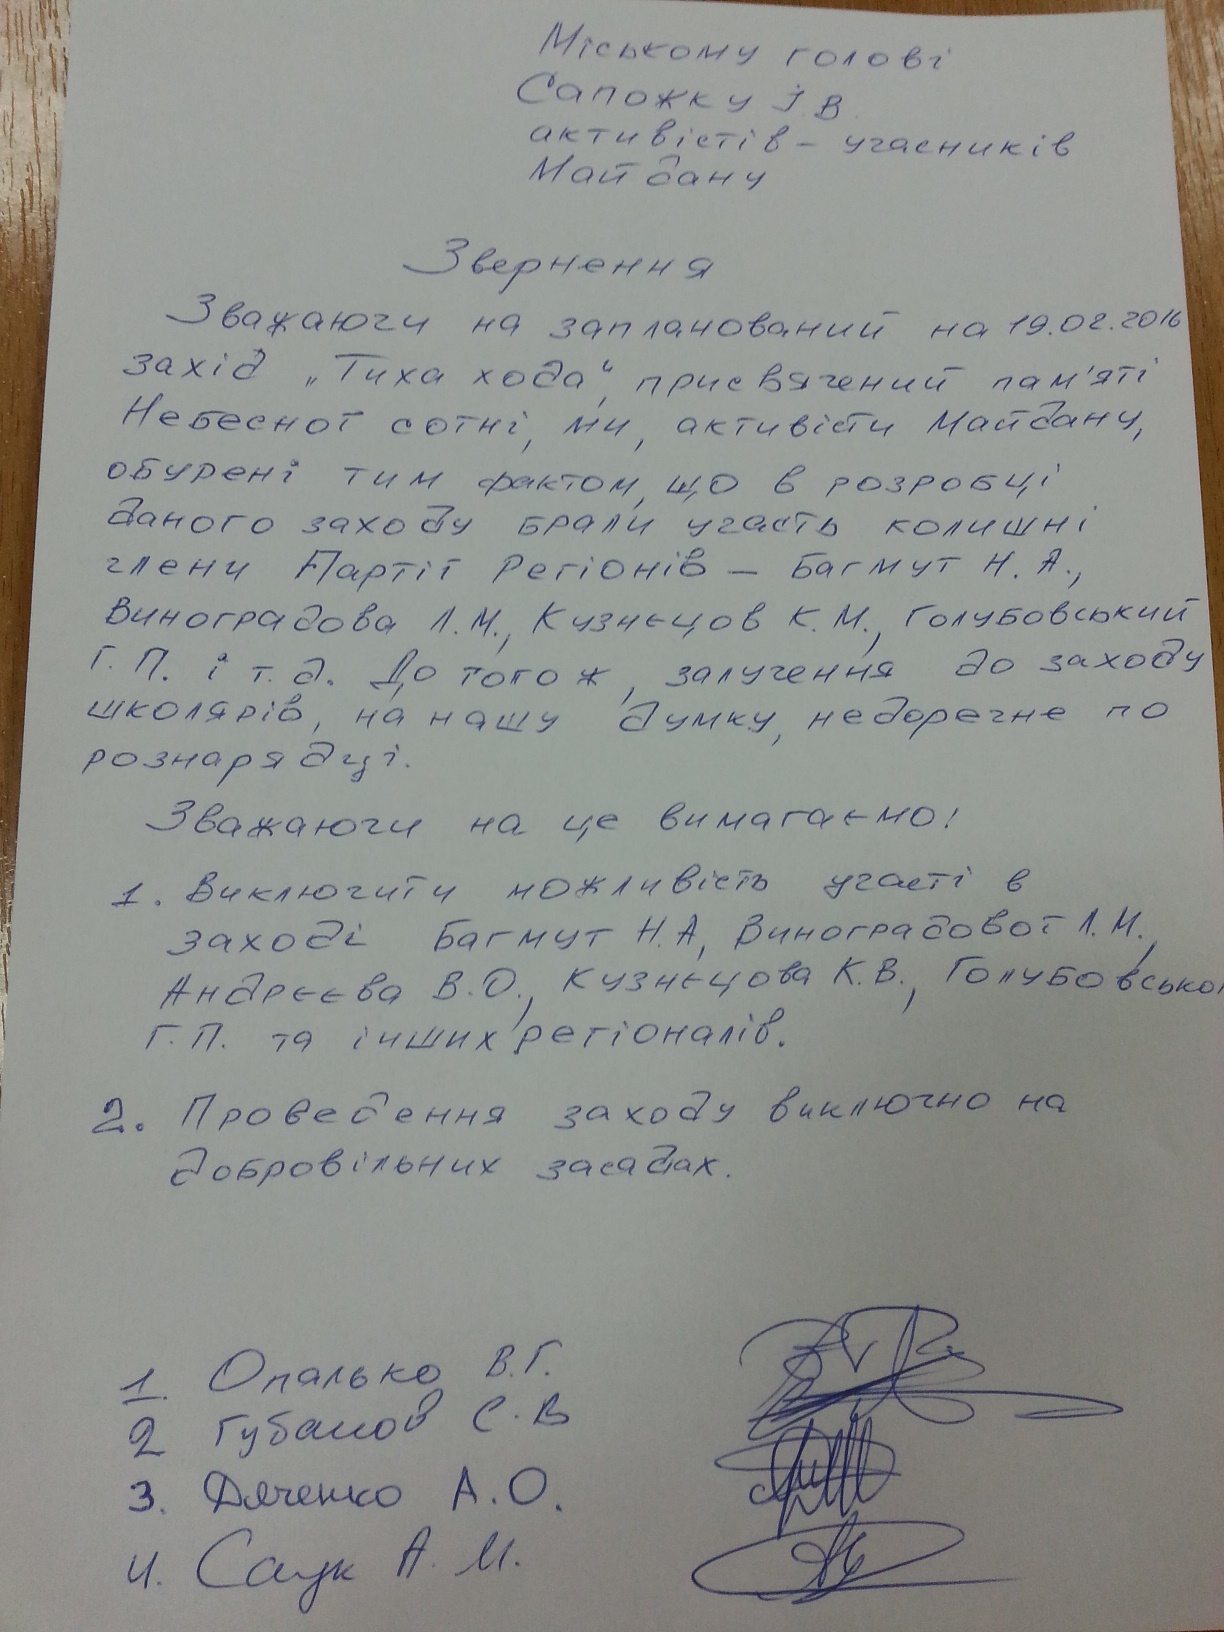 Міському голові
Сапожку І.В.
активістів - учасників
Майдану
Звернення
Зважаючи на запланований на 19.02.2016
захід „Тиха хода", присвячений пам'яті
Небесної сотні, ми, активісти Майдану,
обурені тим фактом, що в розробці
даного заходу брали участь колишні
члени Партії Регіонів – Багмут Н.А.,
Виноградова Л.М., Кузнєцов К.М., Голубовський
Г.П. і т.д. До того ж, залучення до заходу
школярів, на нашу думку, недоречне по
рознарядці.
Зважаючи на це вимагаємо!
1. Виключити можливість участі в
заході Багмут Н.А, Виноградової Л.М.,
Андрєєва В.О., Кузнєцова К.В., Голубовсько
Г.П. та інших регіоналів.
2. Проведення заходу виключно на
добровільних засадах.
1. Опалько В.Г.
2 Губанов С.В
3. Дяченко А.О.
4. Саук А.М.